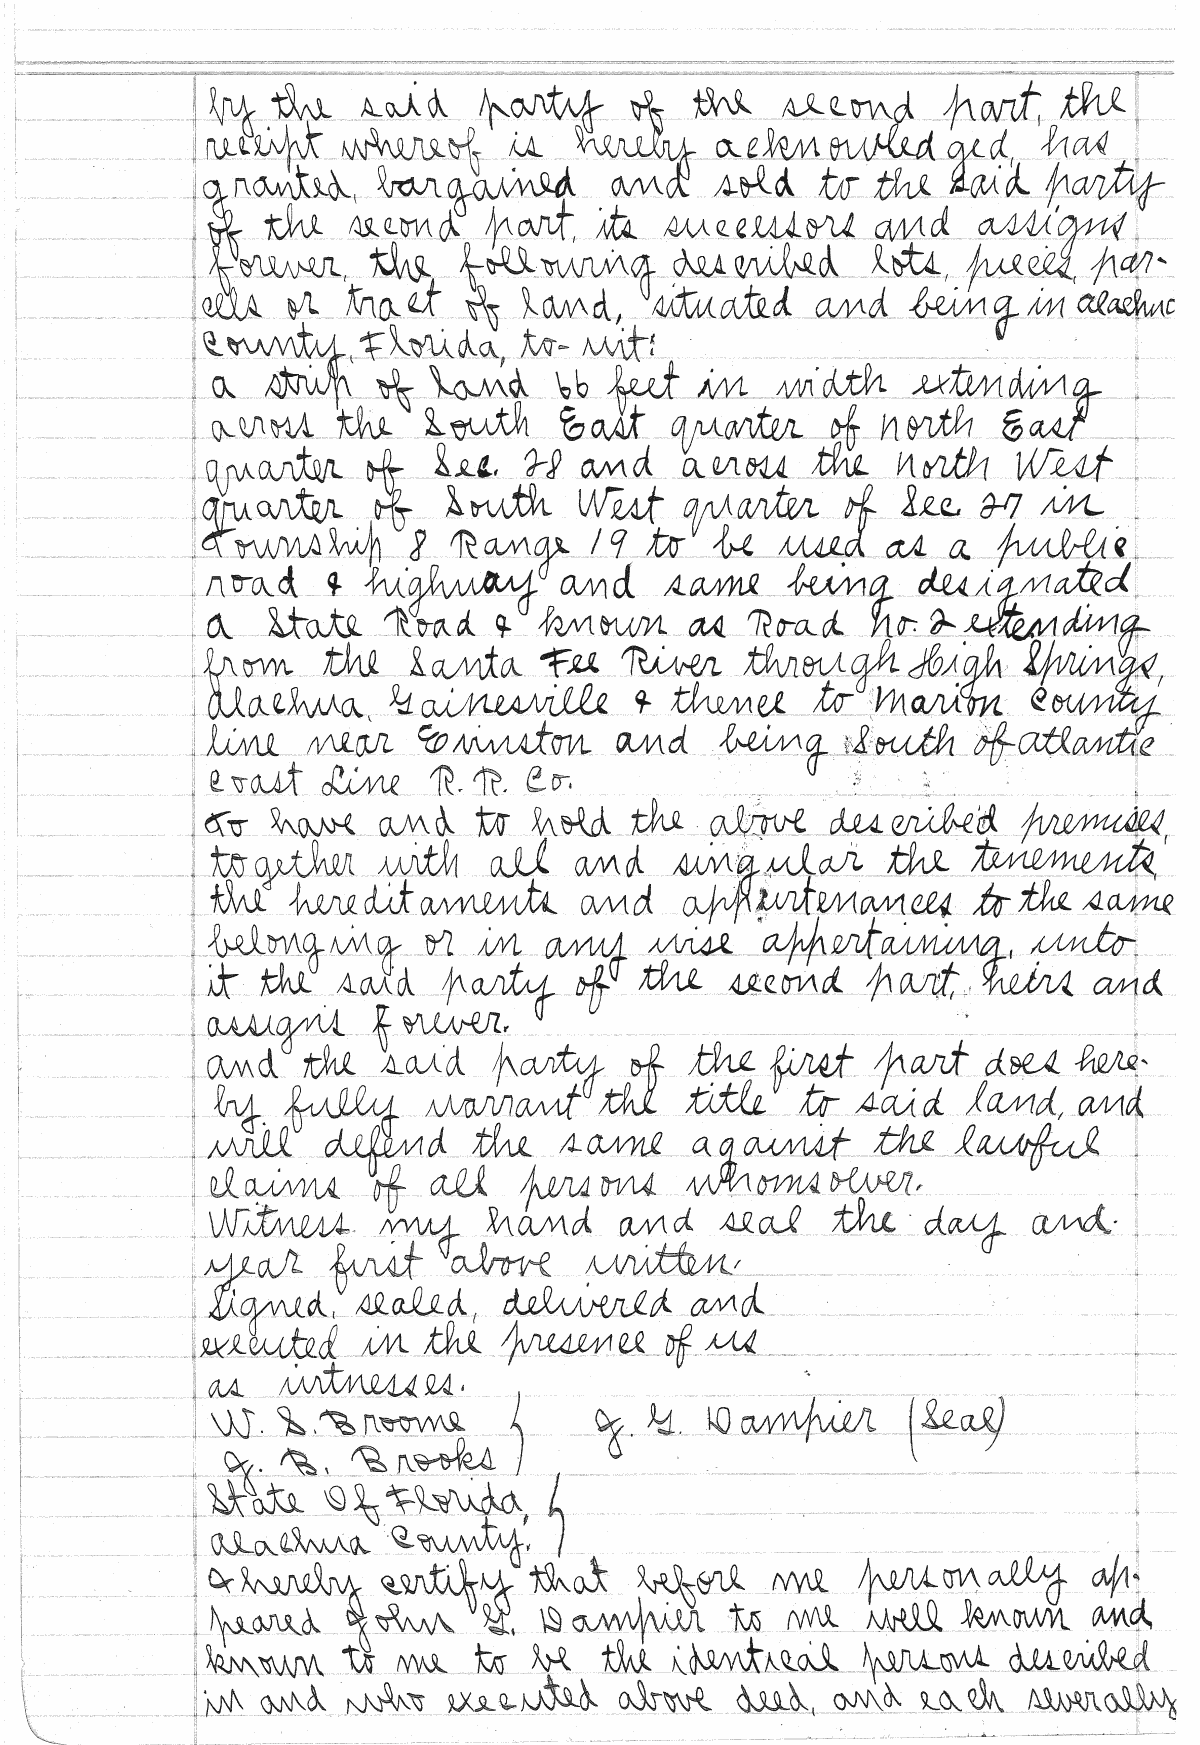 by the said party of the second part, the
receipt whereof is hereby acknowledged, has
granted, bargained and sold to the said party
of the second part, its successors and assigns
forever, the following described lots, pieces, par-
cels or tract of land, situated and being in Alachua
County, Florida, to-wit:
a strip of land 66 feet in width extending
across the South East quarter of North East
quarter of Sec. 28 and across the North West
quarter of South West quarter of Sec 27 in
Township 8 Range 19 to be used as a public
road & highway and same being designated
a State Road & known as Road No. 2 extending
from the Santa Fee River through High Springs,
Alachua, Gainesville & thence to Marion County
line near Evinston and being South of Atlantic
Coast Line R. R. Co.
To have and to hold the above described premises,
together with all and singular the tenements
the hereditaments and appurtenances to the same
belonging or in any wise appertaining, unto
it the said party of the second part, heirs and
assigns forever.
and the said party of the first part does here-
by fully warrant the title to said land, and
will defend the same against the lawful
claims of all persons whomsoever.
Witness my hand and seal the day and
year first above written.
Signed, sealed, delivered and
executed in the presence of us
as witnesses.
W. S. Broome } J. G. Dampier (Seal)
J. B. Brooks
State Of Florida, }
Alachua County.
I hereby certify that before me personally ap-
peared John G. Dampier to me well known and
known to me to be the identical persons described
in and who executed above deed, and each severally